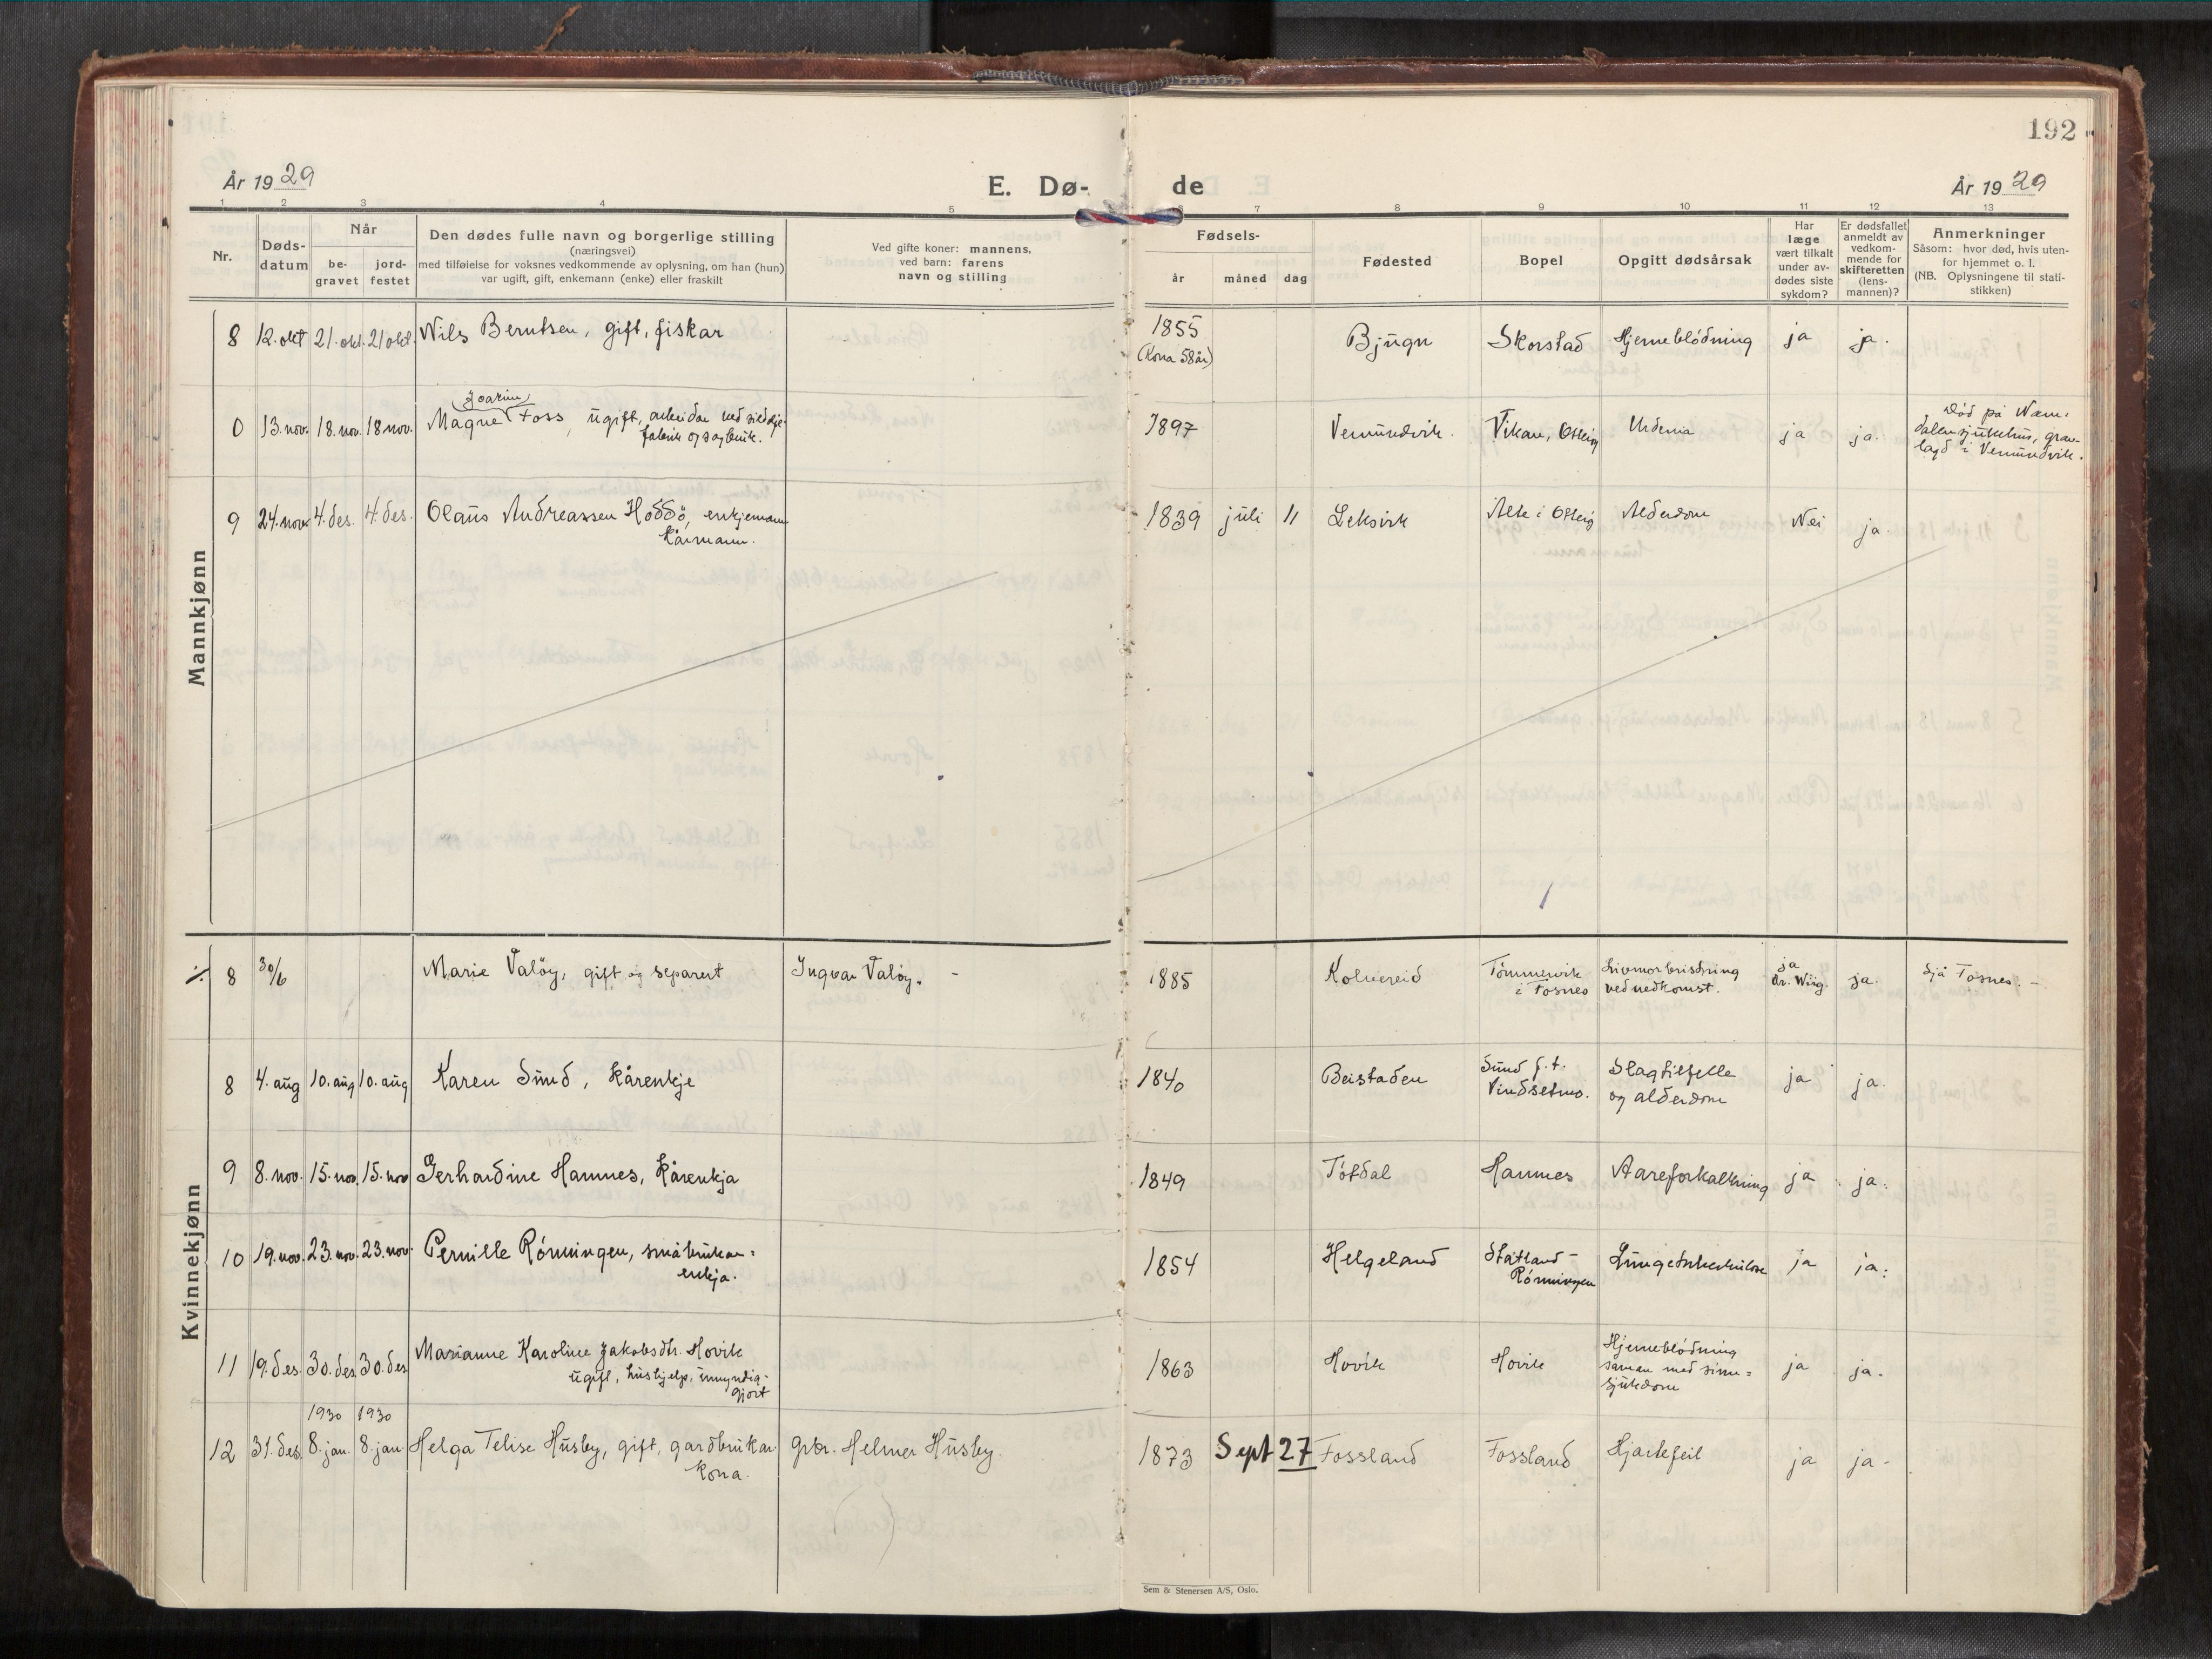 192
År 1929
E. Dø-
de
År 1929
1 2 3 4 5 6 7 8 9 10 11 12 13
Nr.
Døds-
datum
Når
be-
gravet
jord-
festet
Den dødes fulle navn og borgerlige stilling
(næringsvei)
med tilføielse for voksnes vedkommende av oplysning, om han (hun)
var ugift, gift, enkemann (enke) eller fraskilt
Ved gifte koner: mannens,
ved barn: farens
navn og stilling
Fødsels-
år måned dag
Fødested
Bopel
Opgitt dødsårsak
Har
læge
vært tilkalt
under av-
dødes siste
sykdom?
Er dødsfallet
anmeldt av
vedkom-
mende for
skifteretten
(lens-
mannen)?
Anmerkninger
Såsom: hvor død, hvis uten-
for hjemmet o. l.
(NB. Oplysningene til stati-
stikken)
Mannkjønn
8 12. okt 21. okt. 21 okt. Nils Berntsen, gift, fiskar 1855 Bjugn Skorstad Hjerneblödning ja ja.
(Kona 58 år)
Joarim
0 13. nov. 18. nov. 18 nov. Magne Foss, ugift, arbeidar ved sildolje- 1897 Vemundvik. Vikan, Otteröy ja ja. Död på Nam-
fabrik og sagbruk. dalen sjukehus, grav-
lagd i Vemundvik.
9 24. nov. 4. des. 4. des. Olaus Andreassen Hoddö, enkjemann 1839 juli 11 Leksvik Alte i Otteröy Alderdom Nei ja.
kårmann.
Kvinnekjønn
·/. 8 30/6 Marie Valöy, gift og separert Ingvar Valöy. - 1885 Kolvereid Tömmervik Livmorbristning ja ja. Sjå Fosnes. -
i Fosnes ved nedkomst. dr. Wiig.
8 4. aug 10. aug 10. aug Karen Sund, kårenkje 1840 Beistaden Sund f. t. Slagtilfelle ja ja.
Vindsetmo. og alderdom
9 8. nov. 15. nov. 15. nov Gerhardine Hamnes, kårenkja 1849 Töttdal Hamnes Aareforkalkning ja ja.
10 19. nov. 23. nov. 23. nov. Pernille Rönningen, småbrukar- 1854 Helgeland Statland- Lungetuberkulose ja ja.
enkja. Rönningen
11 19. des. 30. des. 30. des Marianne Karoline Jakobsdtr. Hovik 1863 Hovik Hovik Hjerneblödning ja ja.
ugift, hushjelp, umyndig- saman med sinn-
gjort sjukdom
1930 1930
12 31. des. 8. jan. 8. jan. Helga Telise Husby, gift, gardbrukar- grbr. Helmer Husby. 1873 Sept 27 Fossland Fossland Hjartefeil ja ja.
kona.
Sem & Stenersen A/S, Oslo.